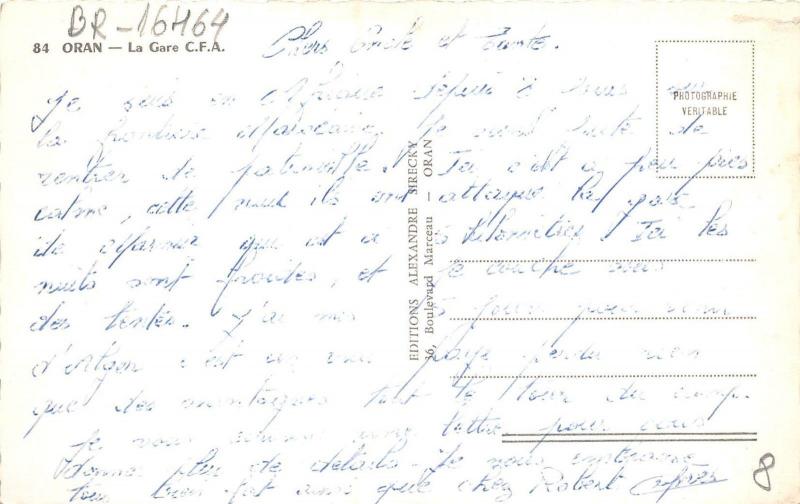 BR-16464
84 ORAN — La Gare C.F.A.
Chers Oncle et Tante.
PHOTOGRAPHIE
VERITABLE
Je suis en Afrique depuis 8 jours
la frontière Marocaine, Je viens juste de
rentrer de patrouille. Ici c'est a peu près
calme, cette nuit ils ont attaqué la gare
de qui est a 5 kilomètres. Ici les
nuits sont froides, et je couche sous
des tentes. J'ai mis 5 jours pour venir
d'Alger c'est un vrai pays perdu rien
que des montagnes tout le tour du camp.
Je vous une lettre pour vous
donner plus de détails. Je vous embrasse
tous bien fort ainsi que chez Robert
EDITIONS ALEXANDRE SIRECKY
36, Boulevard Marceau — ORAN
8